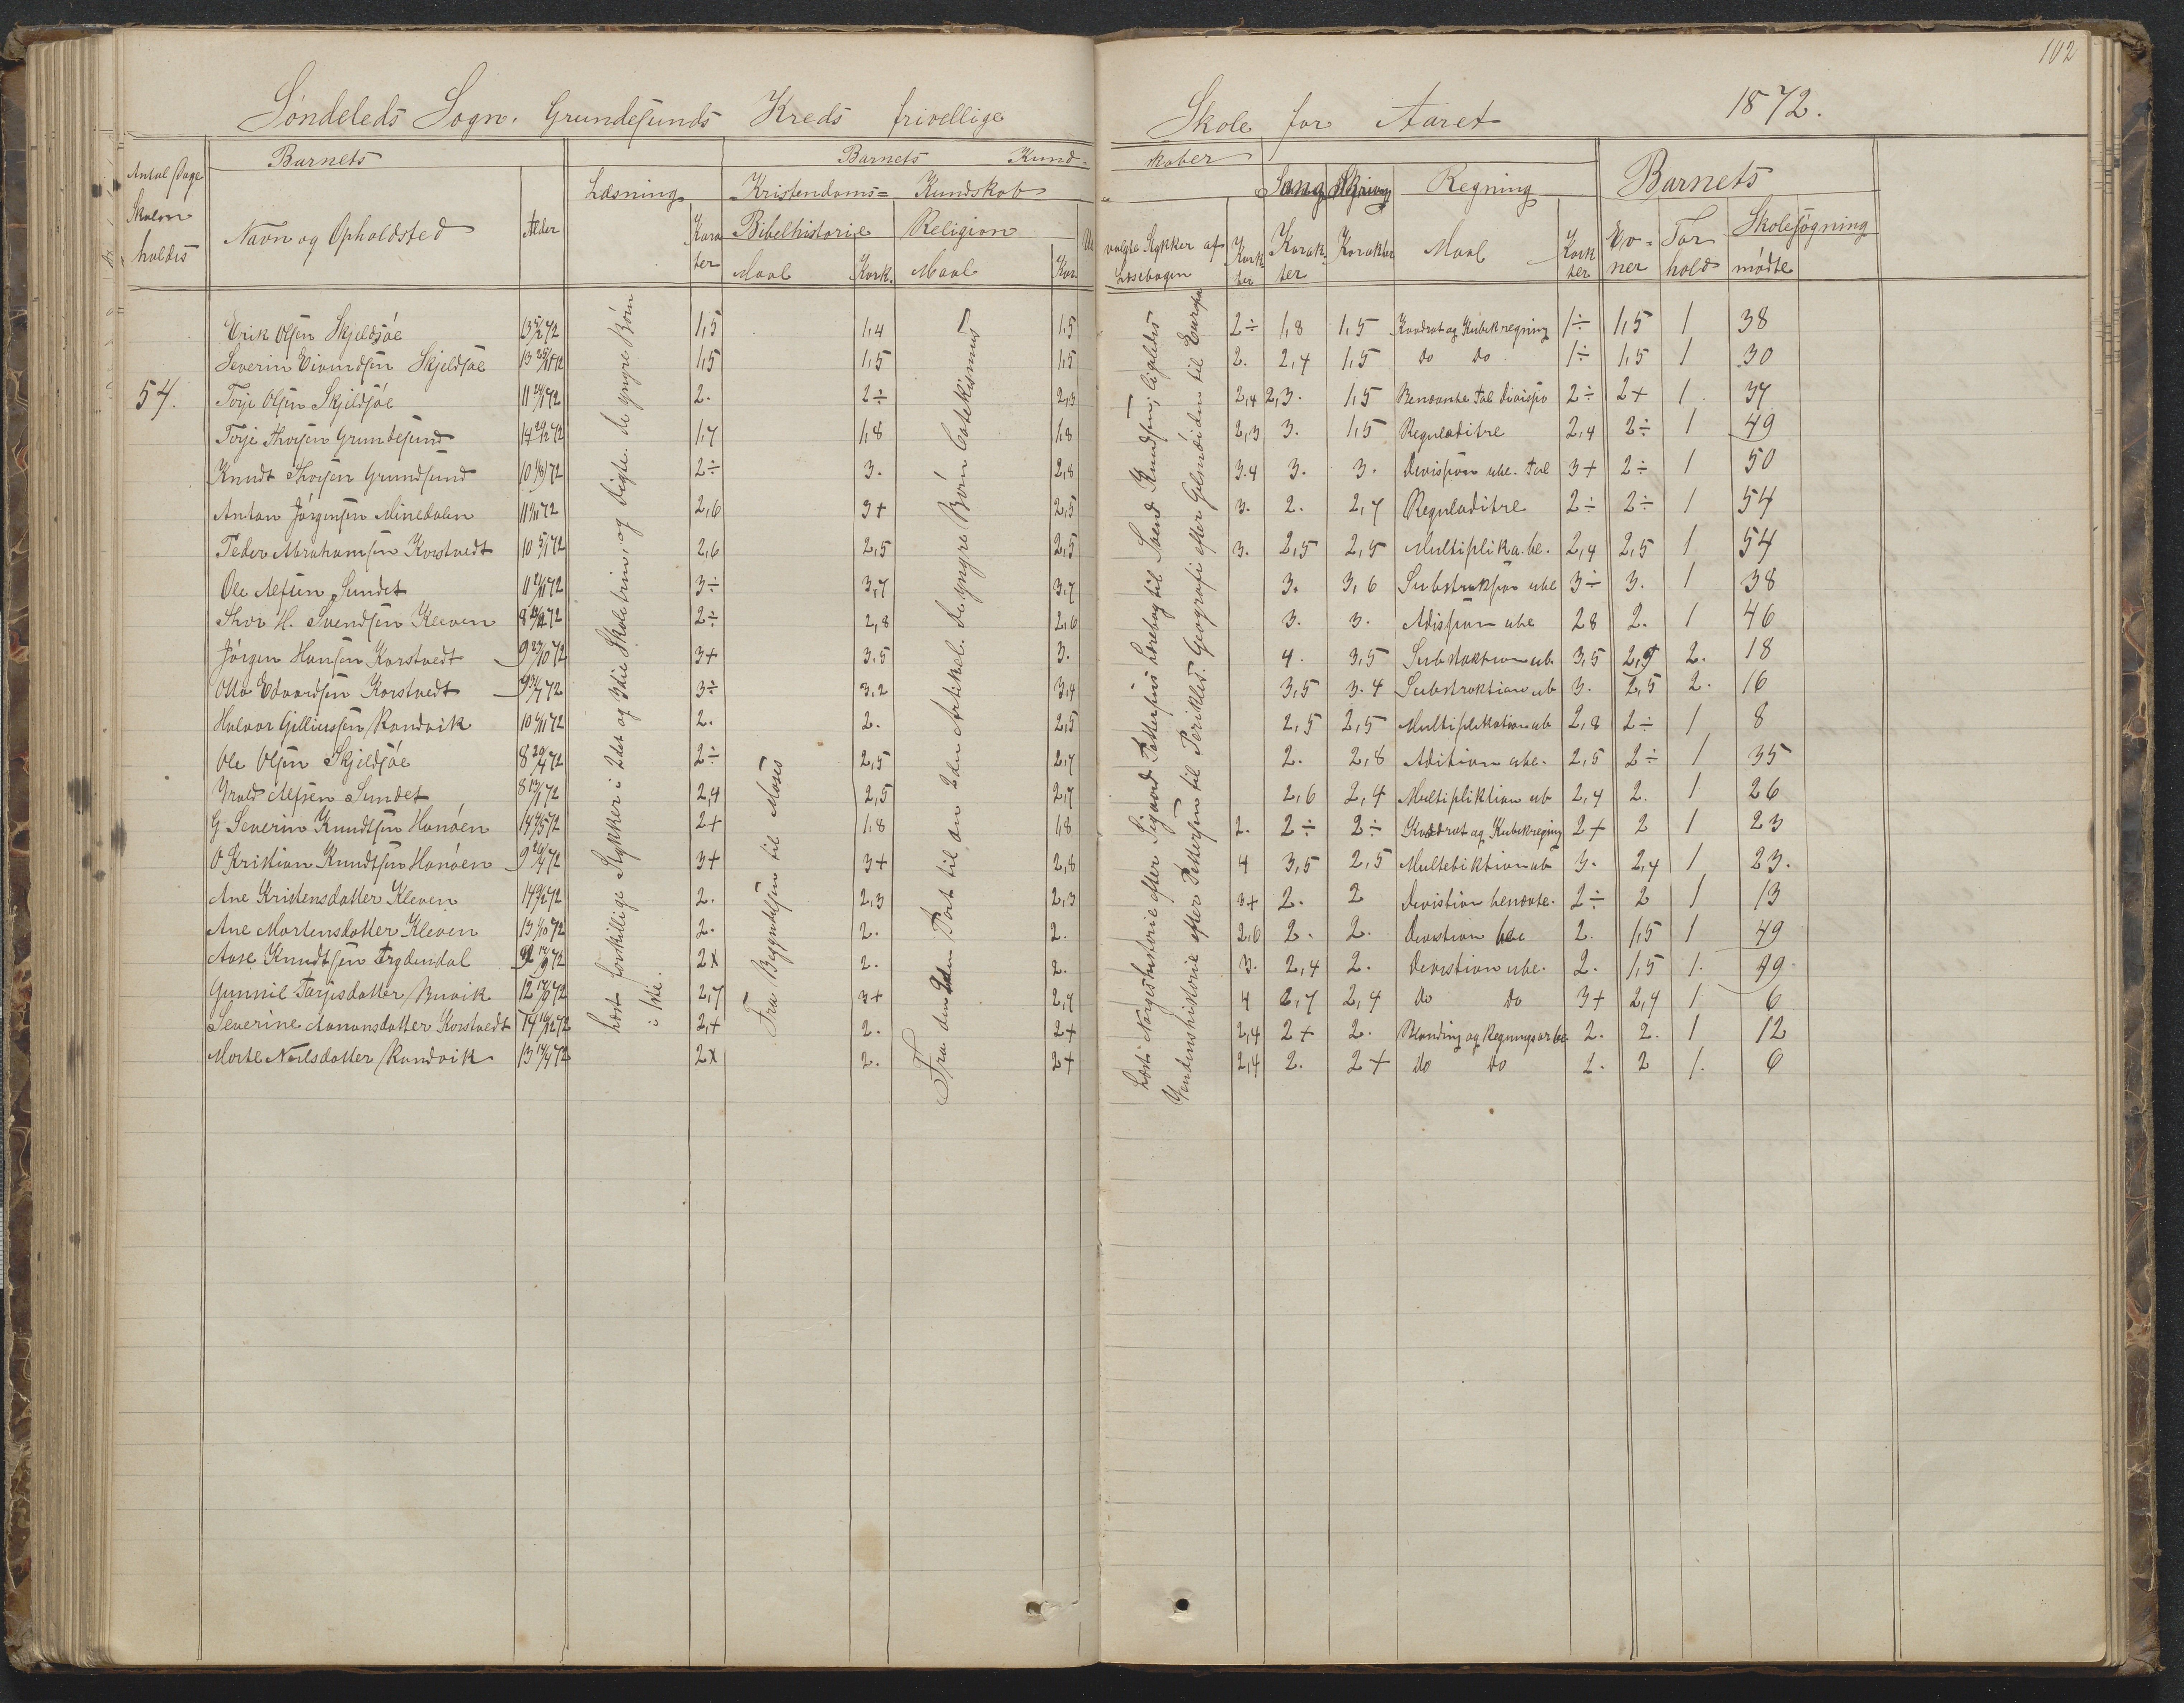 102
Søndeleds Sogn. Grundesunds Kreds frivellige Skole for Aaret 1872.
Antal Dage Skolen holdts
Barnets
Navn og Opholdsted
Alder
Læsning
Karakter
Barnets Kundskaber
Kristendoms-Kundskab
Bibelhistorie
Maal
Kark.
Religion
Maal
Kar.
Udvalgte Stykker af Læsebogen
Karkter
Sang
Karakter
Skrivning
Karakter
Regning
Maal
Karkter
Barnets
Evner
Forhold
Skolesøgning
mødte
54.
Læst forskillige Stykker i 2det og 3die Skoletrin, og Digte. de yngre Børn i 1ste.
Fra Begyndelsen til Moses
Fra den 2den Part til den 2den Artikel. De yngre Børn Catekismus
Læst Norgeshistorie efter Sigvard Pettersens Lærebog til Svend Knudsen; ligeledes
Verdenshistorie efter Pettersen til Perikles. Geografi efter Geelmuiden til Europa
Erik Olsen Skjeldsøe 13 5/2 72 1,5 1,4 1,5 2÷ 1,8 1,5 Kvadrat og Kubikregning 1÷ 1,5 1 38
Severin Eivindsen Skjeldsøe 13 1,5 1,5 1,5 2. 2,4 1,5 do do 1÷ 1,5 1 30
Torje Olsen Skjeldsøe 11 2. 2÷ 2,3 2,4 2,3. 1,5 Benævnte Tal divisjo 2÷ 2+ 1. 37
Torje Thorsen Grundesund 14 1,7 1,8 1,8 2,3 3. 1,5 Reguladitre 2,4 2÷ 1 49
Knudt Thorsen Grundsund 10 2÷ 3. 2,8 3.4 3. 3. Divisjon ube. Tal 3+ 2÷ 1 50
Anton Jørgensen Minedalen 11 2,6 3+ 2,5 3. 2. 2,7 Reguladitre 2÷ 2÷ 1 54
Peder Abrahamsen Korstvedt 10 2,6 2,5 2,5 3. 2,5 2,5 Multiplika. be. 2,4 2,5 1 54
Ole Alfsen Sundet 11 3÷ 3,7 3,7 3. 3,6 Substraksjon ube 3÷ 3. 1 38
Thor H. Svendsen Kleven 8 2÷ 2,8 2,6 3. 3. Adisjion ube 28 2. 1 46
Jørgen Hansen Korstvedt 9 3+ 3.5 3. 4. 3,5 Substraktion ub. 3,5 2,5 2. 18
Otto Edvardsen Korstvedt 9 3÷ 3,2 3,4 3,5 3.4 Substraktion ub 3. 2,5 2. 16
Halvor Gilliussen Randvik 10 2. 2. 2,5 2,5 2,5 Multiplikation ub 2,8 2÷ 1 8
Ole Olsen Skjeldsøe 8 2÷ 2,5 2,7 2. 2,8 Adition ube. 2,5 2÷ 1 35
Alfsen Sundet 8 2,4 2,5 2,7 2,6 2,4 Multipliktion ub 2,4 2. 1 26
G. Severin Knudtsen Hanøen 14 2+ 1,8 1,8 2. 2÷ 2÷ Kvadrat og Kubikregning 2+ 2 1 23
O Kristian Knudtsen Hanøen 9 3+ 3+ 2,8 4 3,5 2,5 Multebiktion ub 3. 2,4 1 23.
Ane Kristensdatter Kleven 14 2. 2,3 2,3 3+ 2. 2 Devistion benævte. 2÷ 2 1 13
Ane Mortensdatter Kleven 13 2. 2. 2. 2,6 2. 2. Devistion ube 2. 1,5 1 49
Aase Knudtsen 2x 2. 2. 3. 2,4 2. Devistion ube. 2. 1,5 1. 49
Gunnil Tarjesdatter Buvik 12 2,7 3+ 2,7 4 2,7 2,4 do do 3+ 2,4 1 6
Severine Aanonsdatter Korstvedt 14 2,+ 2. 2+ 2,4 2+ 2. Blanding og Regningsarbe. 2. 2. 1 12
Marte Neilsdatter Randvik 13 2x 2. 2+ 2,4 2. 2+ do do 2. 2 1. 6